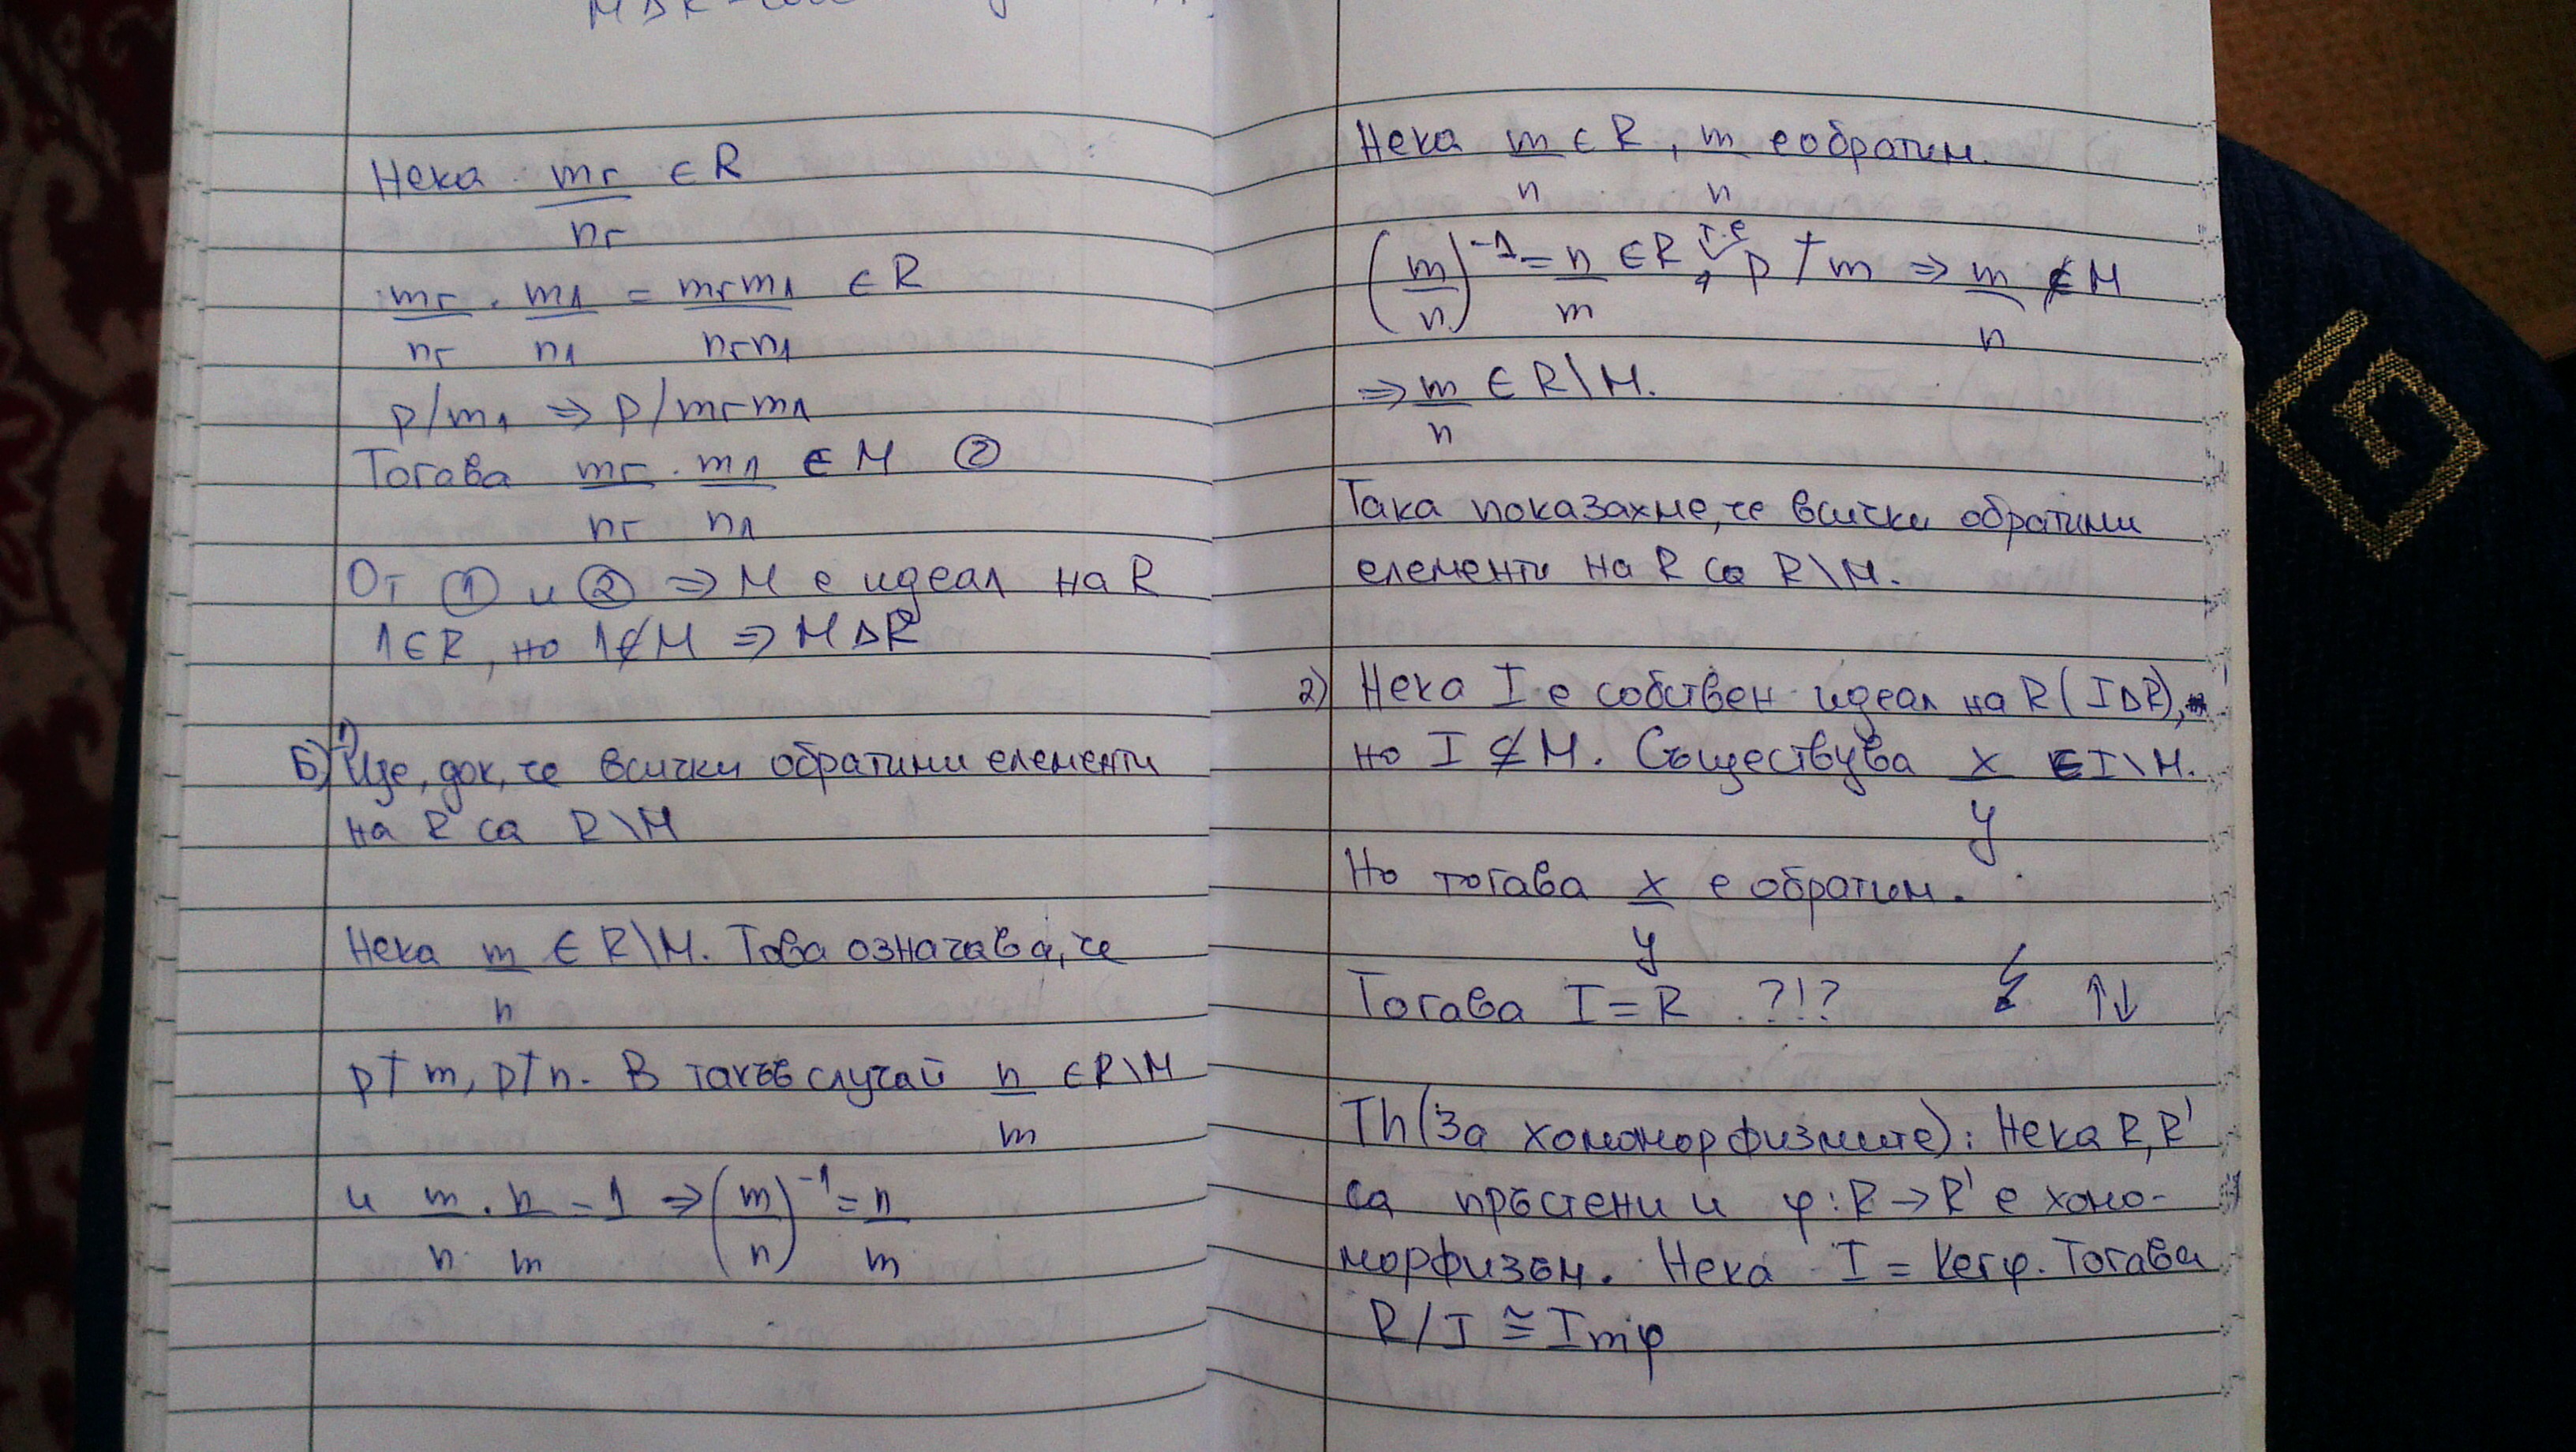 Нека m_г/n_г ∈ R
m_г/n_г · m_1/n_1 = m_г m_1/n_г n_1 ∈ R
p/m_1 ⇒ p/m_г m_1
Тогава m_г/n_г · m_1/n_1 ∈ M ②
От ① и ② ⇒ M е идеал на R
1∈R, но 1∉M ⇒ M Δ R
Б) 1) Ще док, че всички обратими елементи
на R са R\M
Нека m/n ∈ R\M. Това означава, че
p∤m, p∤n. В такъв случай n/m ∈ R\M
и m/n · n/m = 1 ⇒ (m/n)^-1 = n/m
Нека m/n ∈ R, m/n е обратим.
(m/n)^-1 = n/m ∈ R, т.е p ∤ m ⇒ m/n ∉ M
⇒ m/n ∈ R\M.
Така показахме, че всички обратими
елементи на R са R\M.
2) Нека I е собствен идеал на R (I Δ R),
но I ⊄ M. Съществува x/y ∈ I\M.
Но тогава x/y е обратим.
Тогава I = R ?!? ↯ ↑↓
Th (За хомоморфизмите): Нека R, R'
са пръстени и φ: R → R' е хомо-
морфизъм. Нека I = Kerφ. Тогава
R/I ≅ Imφ